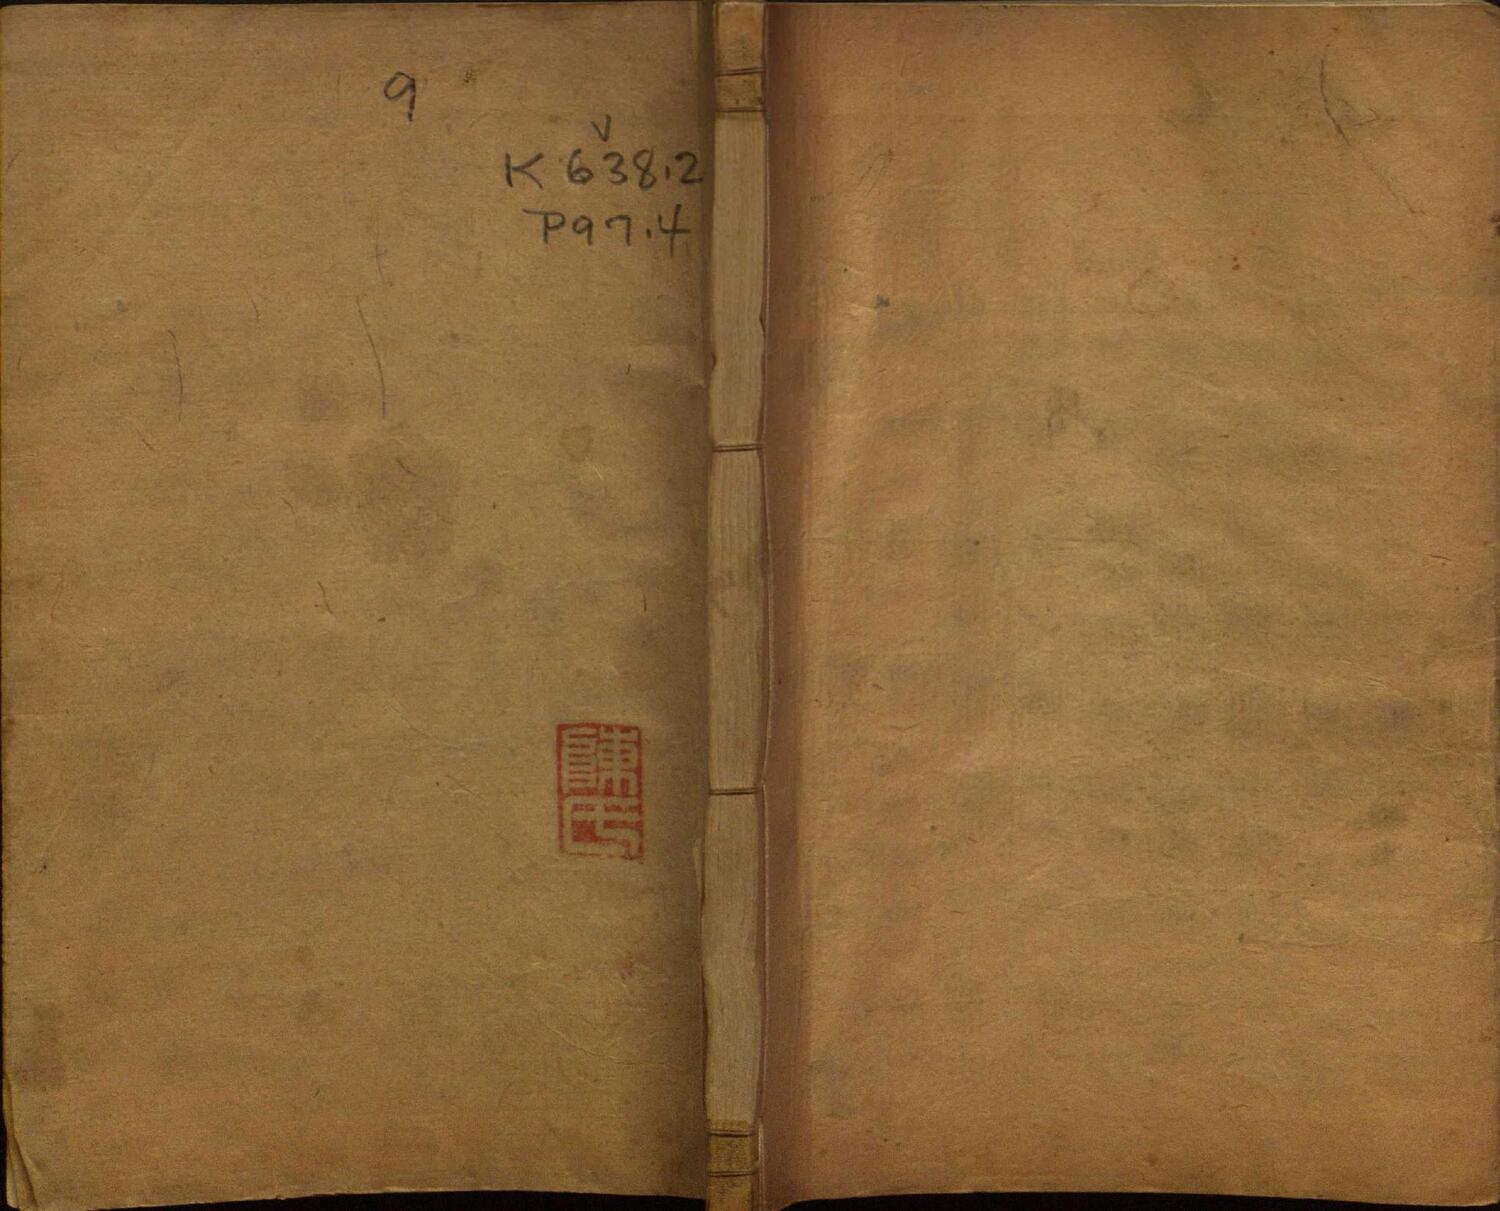 9
K 638.2
P97.4
陳氏